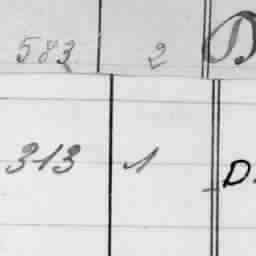 583 2 D
313 1 D.